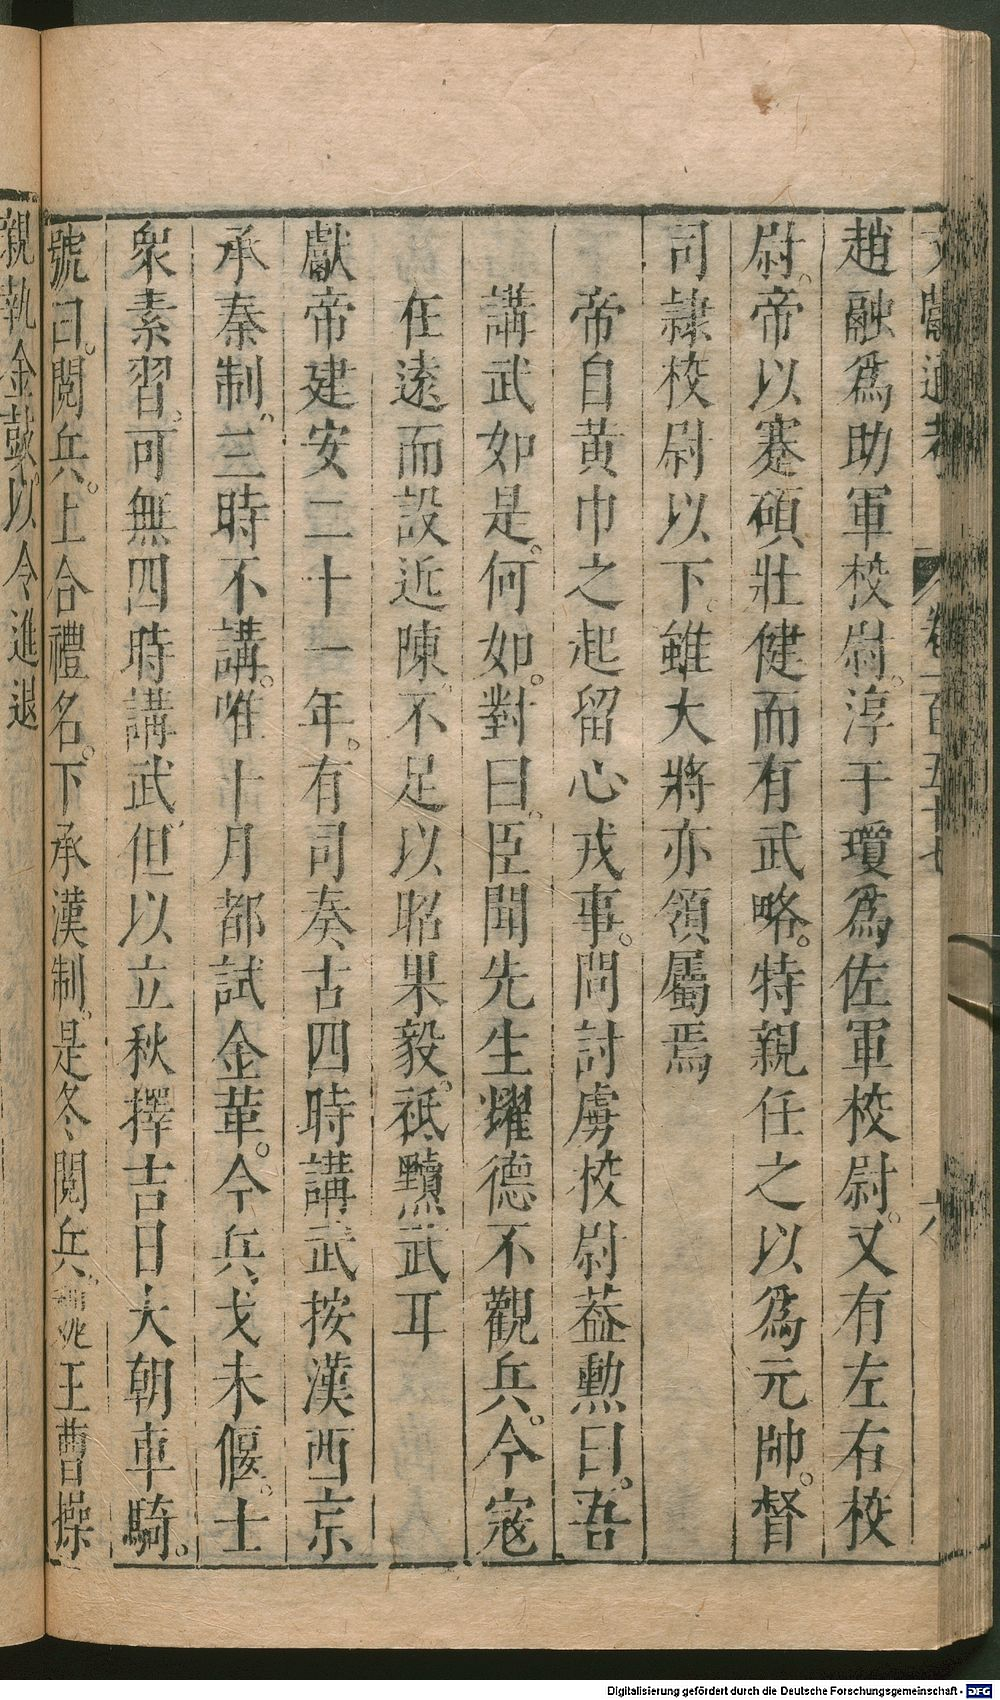 文獻通考 卷一百五十七 六
趙融爲助軍校尉。淳于瓊爲佐軍校尉。又有左右校
尉。帝以蹇碩壯健而有武略。特親任之以爲元帥。督
司隷校尉以下。雖大將亦領屬焉
帝自黃巾之起留心戎事。問討虜校尉葢勲曰。吾
講武如是。何如。對曰。臣聞先生耀德不觀兵。今寇
在遠而設近陳。不足以昭果毅。秪黷武耳
獻帝建安二十一年。有司奏。古四時講武按漢西京
承秦制。三時不講。惟十月都試金革。今兵戈未偃。士
衆素習。可無四時講武。但以立秋擇吉日大朝車騎。
號曰。閱兵。上合禮名。下承漢制。是冬閱兵。魏王曹操
親執金鼓。以令進退
Digitalisierung gefördert durch die Deutsche Forschungsgemeinschaft - DFG